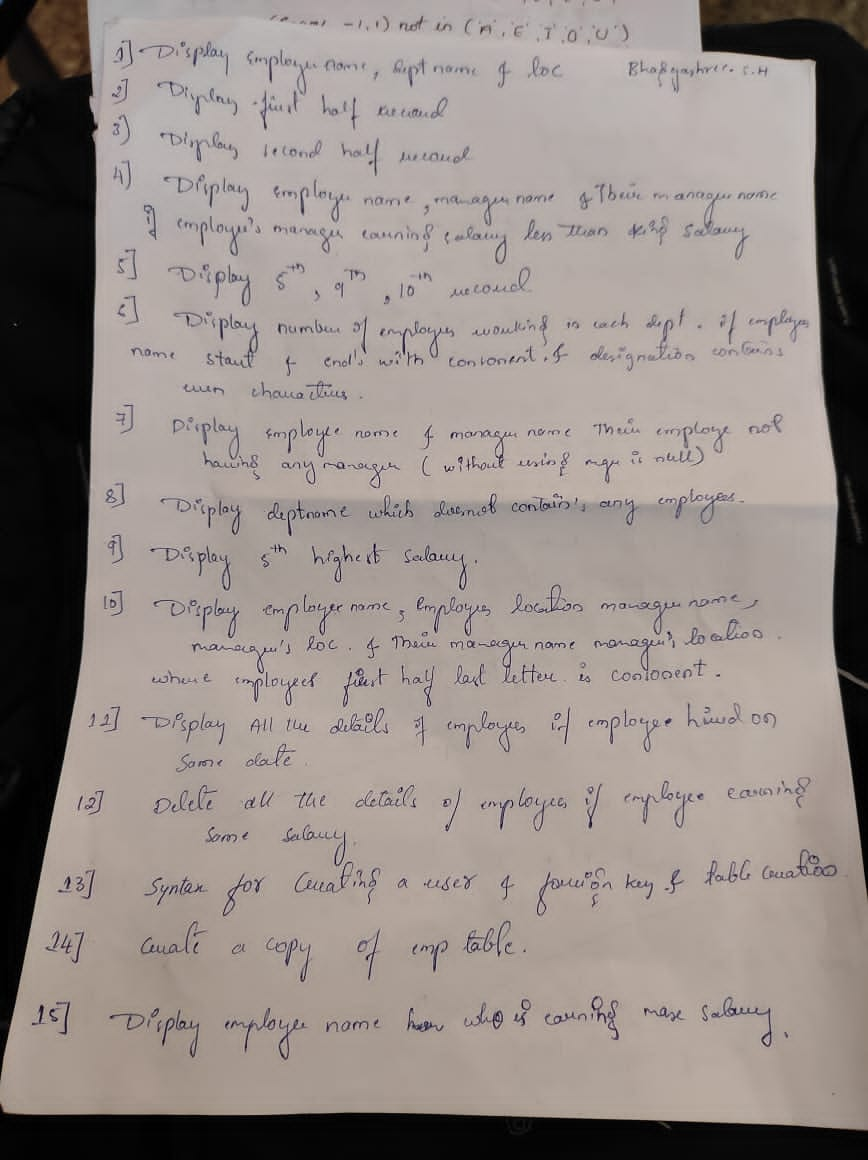 -1,1) not in ('A','E','I','O','U')
1] Display Employee name, dept name & loc Bhagyashree. S.H
2] Display first half record
3] Display second half record
4] Display employee name, manager name & Their manager name
if employee's manager earning salary less than king salary
5] Display 5th, 9th, 10th record
6] Display number of employees working in each dept. if employee
name start & end's with consonent. & designation contains
even charactius.
7] Display Employee name & manager name Their employe not
having any manager (without using mgr is null)
8] Display deptname which doesnot contain's any employees.
9] Display 5th highest salary.
10] Display employee name, Employees location manager name,
manager's loc. & Their manager name manager's location.
where employees first half last letter is consonent.
11] Display All the details of employees if employee hired on
same date.
12] Delete all the details of employees if employee earning
some salary.
13] Syntax for Creating a user & foreign key & table creation
14] Create a copy of emp table.
15] Display employee name who is earning max salary.